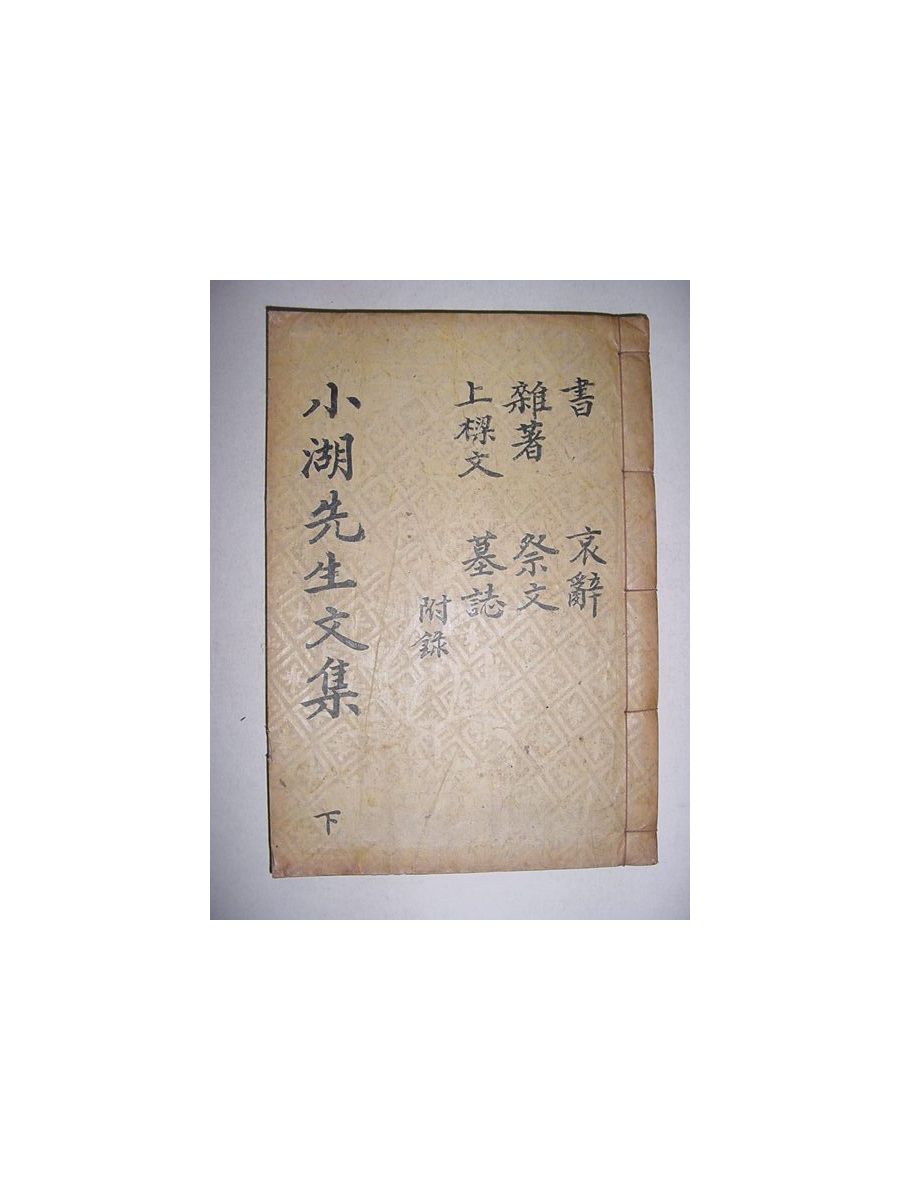 書 哀辭
雜著 祭文
上樑文 墓誌
附錄
小湖先生文集 下